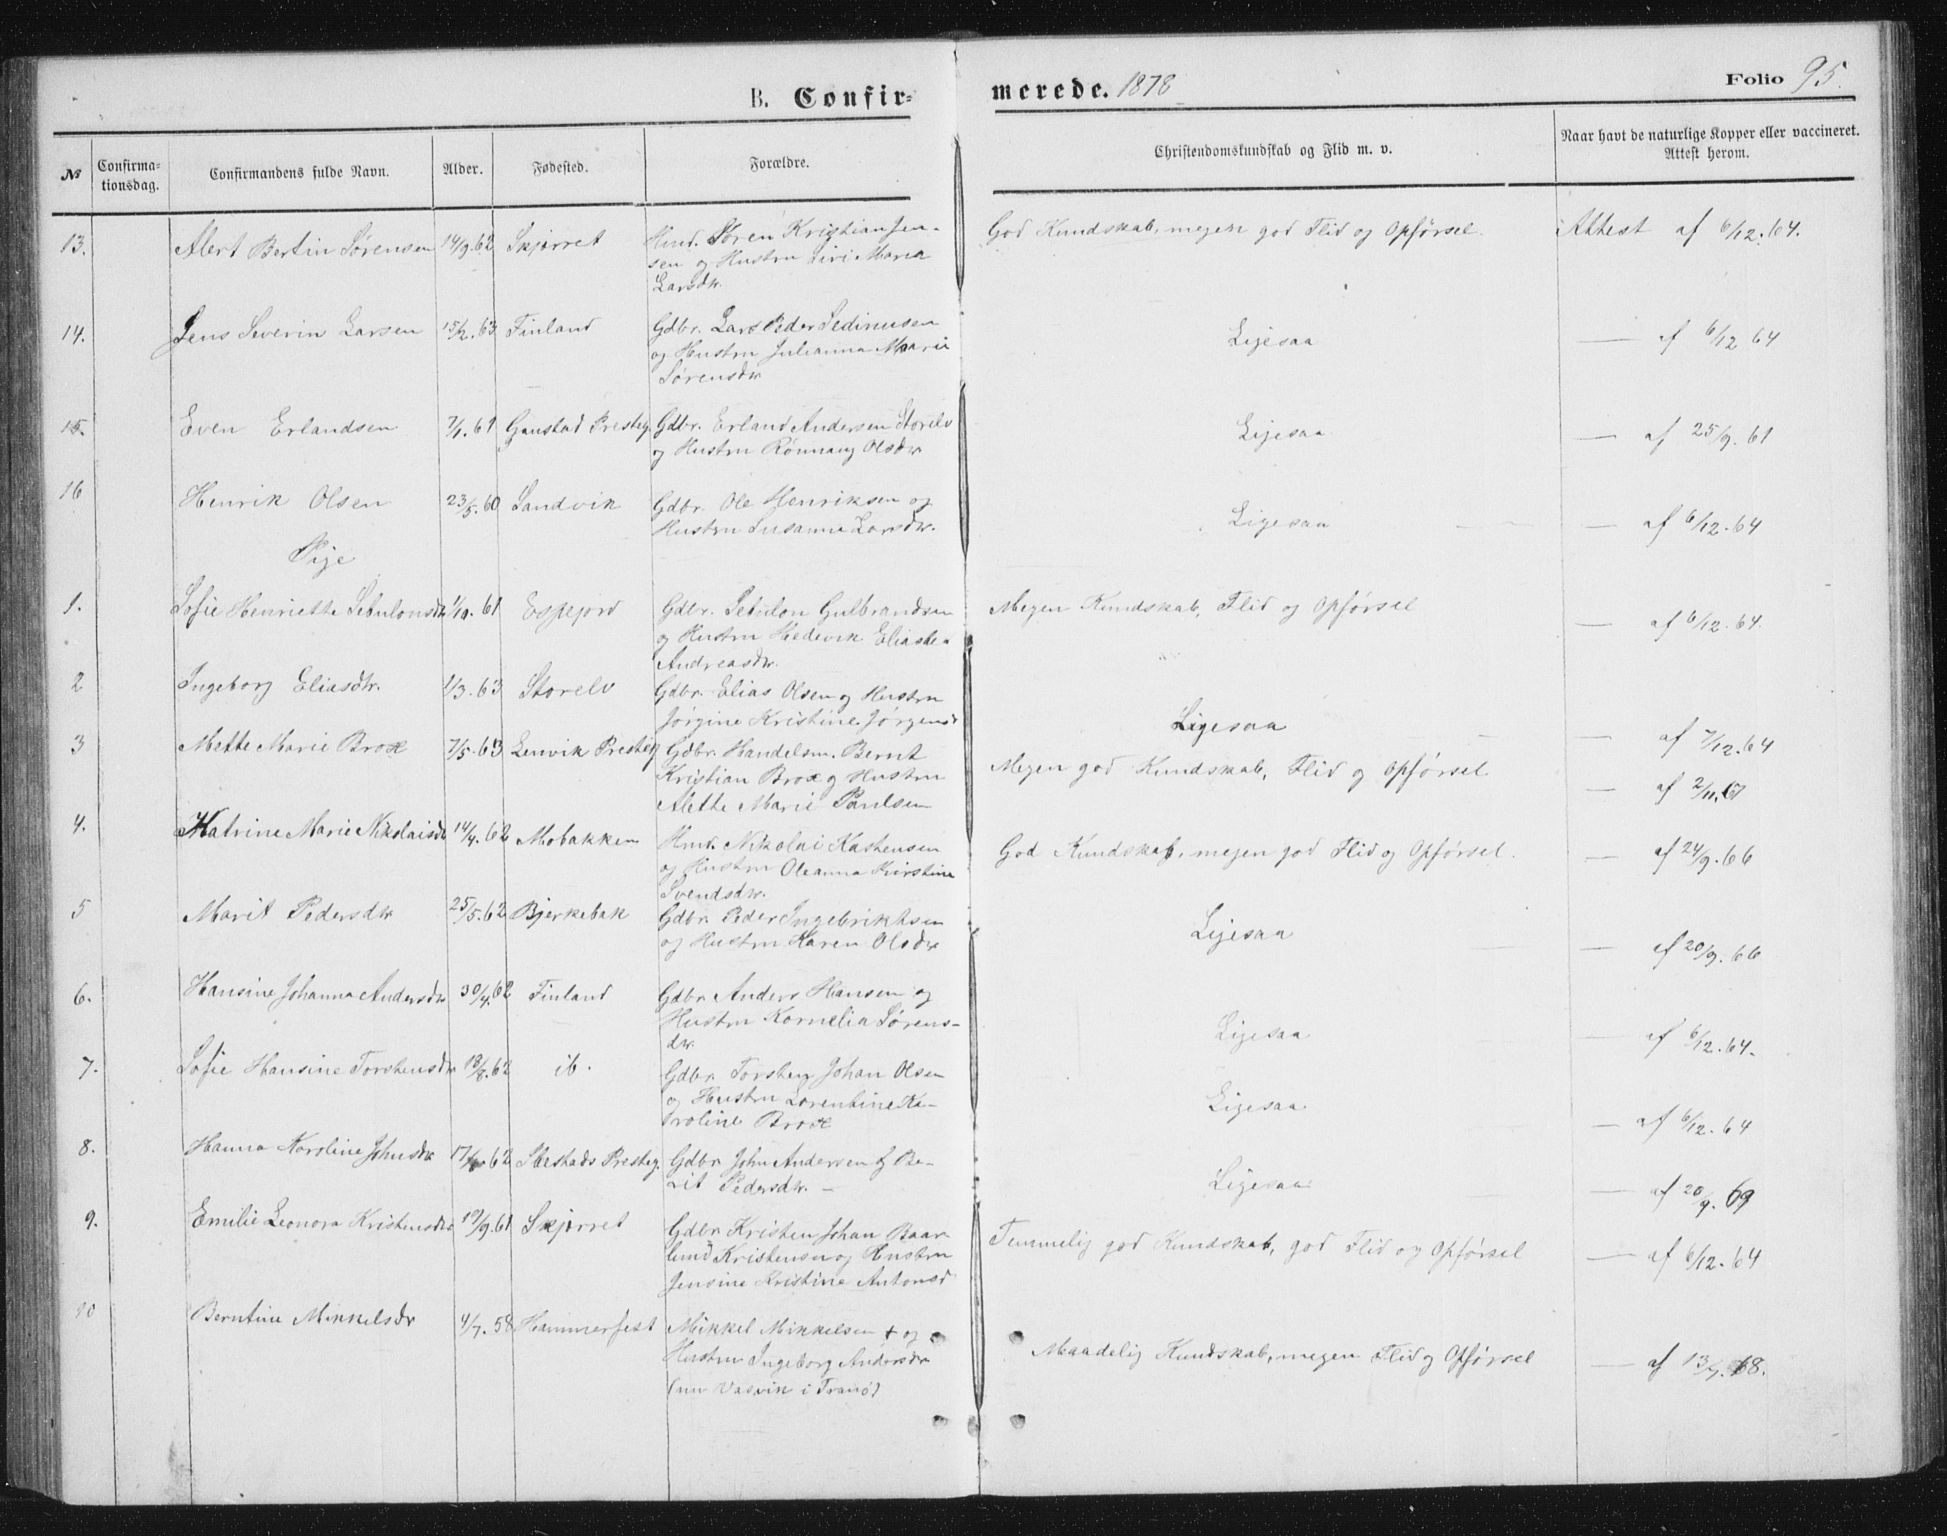 B. Confir-
merede. 1878
Folio 95.
№
Confirma-
tionsdag.
Confirmandens fulde Navn.
Alder.
Fødested.
Forældre.
Christendomskundskab og Flid m. v.
Naar havt de naturlige Kopper eller vaccineret.
Attest herom.
13. Alert Bertin Sørensen 14/9.62 Skjørret Hmd. Søren Kristian Jen- God Kundskab, megen god Flid og Opførsel. Attest af 6/12.64.
sen og Hustru Siri Maria
Larsdtr.
14. Jens Severin Larsen 15/2.63 Finland Gdbr. Lars Peder Sedinusen Ligesaa — af 6/12 64
og Hustru Julianna Marie
Sørensdtr
15. Even Erlandsen 7/1.61 Prestg. Gdbr. Erland Andersen Storelv Ligesaa — af 25/9.61
og Hustru Rønnaug Olsdtr
16 Henrik Olsen 23/5.60 Sandvik Gdbr. Ole Henriksen og Ligesaa — af 6/12.64
Hustru Susanna Larsdtr.
Pige
1. Sofie Henriette Sebulonsdtr 1/10.61 Espejord Gdbr. Sebulon Gulbrandsen Megen Kundskab, Flid og Opførsel — af 6/12.64.
og Hustru Hedevik
Andreasdtr.
2 Ingeborg Eliasdtr. 1/3.63 Storelv Gdbr. Elias Olsen og Hustru Ligesaa — af 7/12.64
Jørgine Kristine Jørgensd
3 Mette Marie Brox 7/5.63 Lenvik Presteg Gdbr. Handelsm. Bernt Megen god Kundskab, Flid og Opførsel — af 2/11.67
Kristian Brox og Hustru
Alette Marie Paulsen
4. Katrine Marie Nikolaisdt 14/4.62 Mobakken Hmd. Nikolai Kastensen God Kundskab, megen god Flid og Opførsel. — af 24/9.66
og Hustru Oleanna Kirstine
Svendsdtr.
5 Marit Pedersdtr 25/5.62 Bjerkebak Gdbr. Peder Ingebriktsen Ligesaa — af 20/9.66
og Hustru Karen Olsdtr
6. Hansine Johanna Andersdtr 30/4.62 Finland Gdbr. Anders Hansen og Ligesaa — af 6/12.64.
Hustru Kornelia Sørens-
dtr.
7. Sofie Hansine Torstensdtr 18/8.62 ib. Gdbr. Torsten Johan Olsen Ligesaa — af 6/12.64
og Hustru Lorentine Ka-
roline Brox
8. Hanna Karoline Johnsdtr 62 Ibestads Presteg. Gdbr. John Andersen & Be- Ligesaa — af 20/9.69
rit Pedersdtr. —
9. Emilie Leonora Kristensdtr 19/9.61 Skjørret Gdbr. Kristen Johan Baar- Temmelig god Kundskab, god Flid og Opførsel — af 6/12.64
lund Kristensen og Hustru
Jensine Kristine Antonsd
10 Berntine Mikkelsdtr 4/7.58 Hammerfest Mikkel Mikkelsen + og Maadelig Kundskab, megen Flid og Opførsel — af 13/7.68.
Hustru Ingeborg Andersdtr
(nu Vasvik i Tranø)